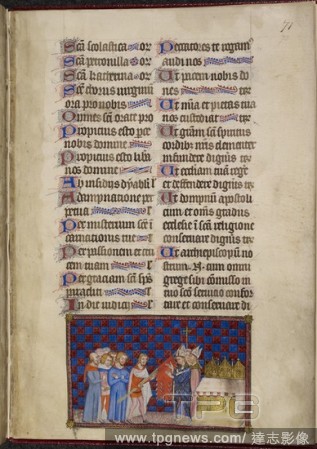 71
Sca scolastica or
Sca petronilla or
Sca katherina or
Sce chorus virginum
ora pro nobis
Omnes sci orate pro
Propicius esto parce
nobis domine
Propicius esto libera
nos domine
Ab insidiis dyaboli l
A dampnatione per
petua l
Per misterium sce i
carnationis tue l
Per passionem et cru
cem tuam l
Per graciam sci sps
paracliti l
In die iudicii l
Peccatores te rogam
audi nos
Ut pacem nobis do
nes
Ut mia et pietas tua
nos custodiat
Ut gram sci spiritus
cordib nris clementer
infundere digneris te r
Ut eccliam tuam rege
et defendere digneris te r
Ut dompnum apostoli
cum et omis gradus
ecclesie i sca religione
conseruare digneris te r
Ut archiepiscopum no
strum et cum omni
grege sibi commisso in
tuo sco seruicio confor
tare et conseruare di
TPG
www.tpgnews.com/ 達志影像